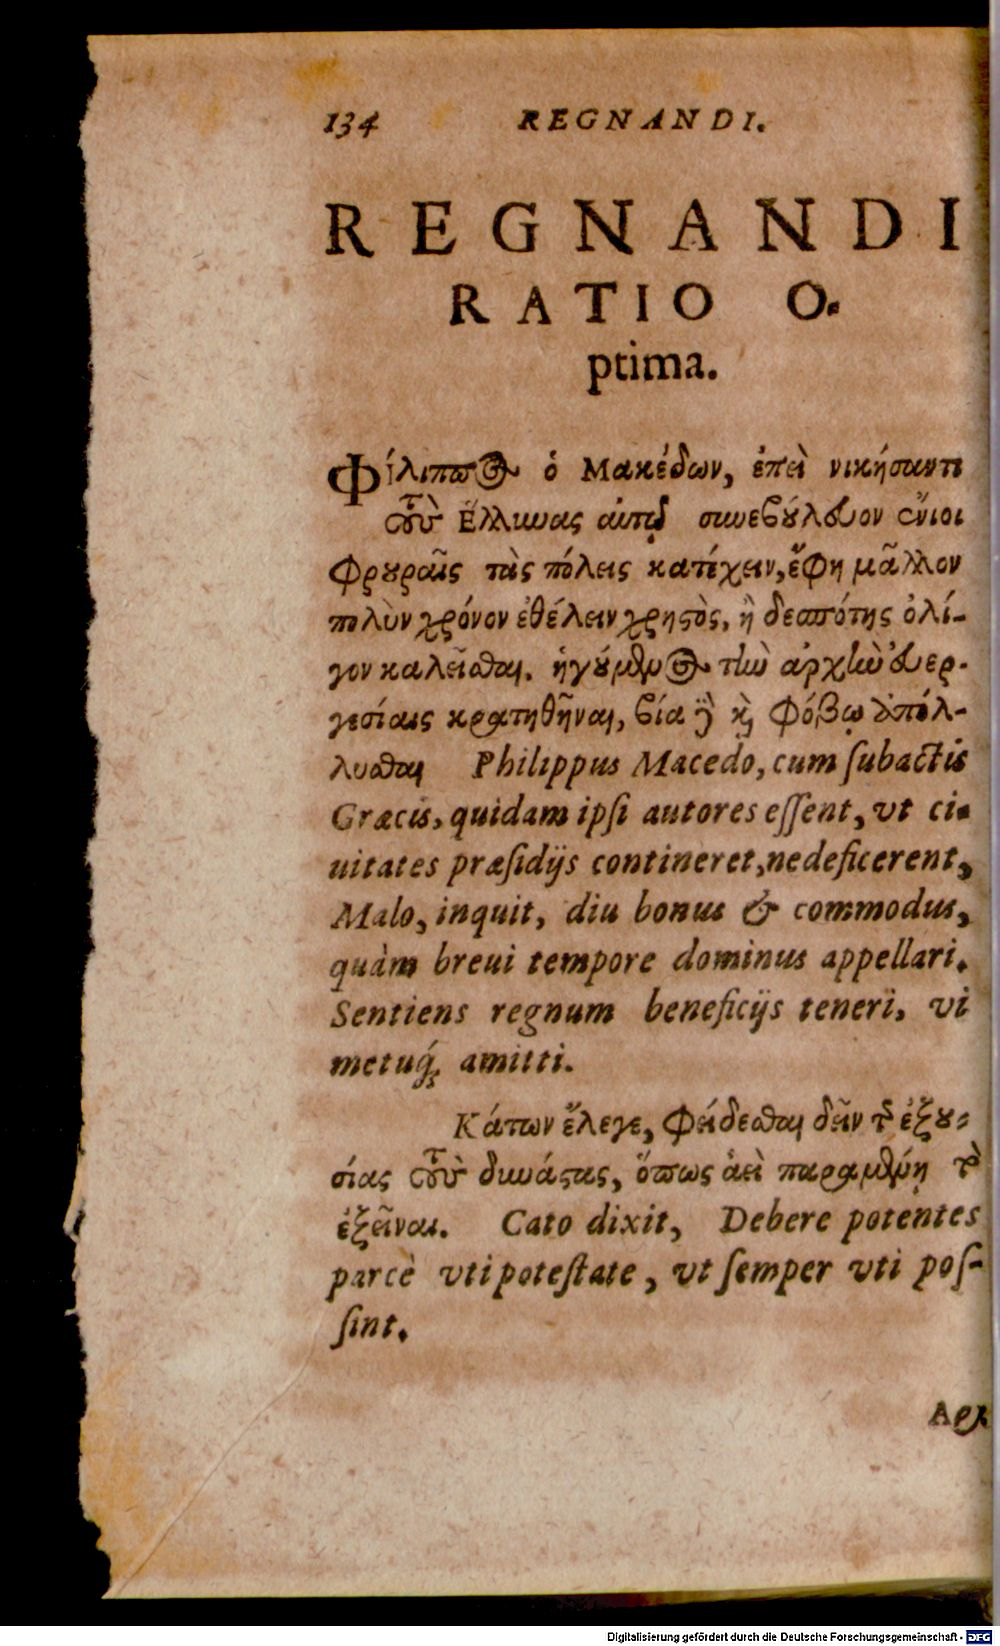 134 REGNANDI.
REGNANDI
RATIO O-
ptima.
Φίλιππος ὁ Μακέδων, ἐπεὶ νικήσαντι
τοὺς Ἕλληνας αὐτῷ συνεβούλευον ἔνιοι
φρουραῖς τὰς πόλεις κατέχειν, ἔφη μᾶλλον
πολὺν χρόνον ἐθέλειν χρηστὸς, ἢ δεσπότης ὀλί-
γον καλεῖσθαι. ἡγούμενος τὴν ἀρχὴν εὐερ-
γεσίαις κρατηθῆναι, βίᾳ δὲ καὶ φόβῳ ἀπόλ-
λυσθαι Philippus Macedo, cum ſubactis
Græcis, quidam ipſi autores eſſent, vt ci-
uitates præſidijs contineret, ne deficerent,
Malo, inquit, diu bonus & commodus,
quàm breui tempore dominus appellari.
Sentiens regnum beneficijs teneri, vi
metuq́; amitti.
Κάτων ἔλεγε, φείδεσθαι δεῖν τῆς ἐξου-
σίας τοὺς δυνάστας, ὅπως ἀεὶ παραμένῃ τὸ
ἐξεῖναι. Cato dixit, Debere potentes
parcè vti poteſtate, vt ſemper vti poſ-
ſint.
Αρχ
Digitalisierung gefördert durch die Deutsche Forschungsgemeinschaft - DFG